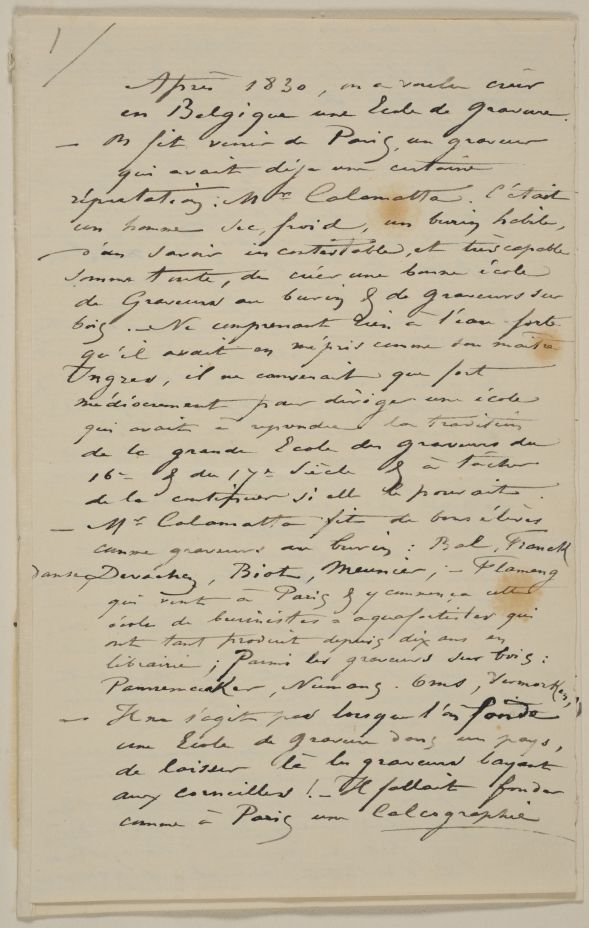 1/
Après 1830, on a voulu créer
en Belgique une Ecole de Gravure.
— On fit venir de Paris, un graveur
qui avait déja une certaine
réputation: Mr Calamatta. C'était
un homme sec, froid, un burin habile,
d'un savoir incontestable, et très capable
somme toute, de créer une bonne école
de Graveurs au burin & de graveurs sur
bois. — Ne comprenant rien à l'eau forte
qu'il avait en mépris comme son maître
Ingres, il ne convenait que fort
médiocrement pour diriger une école
qui avait à reprendre la tradition
de la grande Ecole des graveurs du
16e & du 17e Siècle & à tâcher
de la continuer si elle le pouvait.
— Mr Calamatta fit de bons élèves
comme graveurs au burin: Bal, Franck
Danse, Devachez, Biot, Meunier; — Flameng
qui vint à Paris & y commença cette
école de burinistes & aquafortistes qui
ont tant produit depuis dix ans en
librairie; Parmi les graveurs sur bois:
Pannemaker, Numans. Oms, Vermorken;
— Il ne s'agit pas lorsque l'on fonde
une Ecole de gravure dans un pays,
de laisser là les graveurs bayant
aux corneilles! — Il fallait fonder
comme à Paris une Calcographie